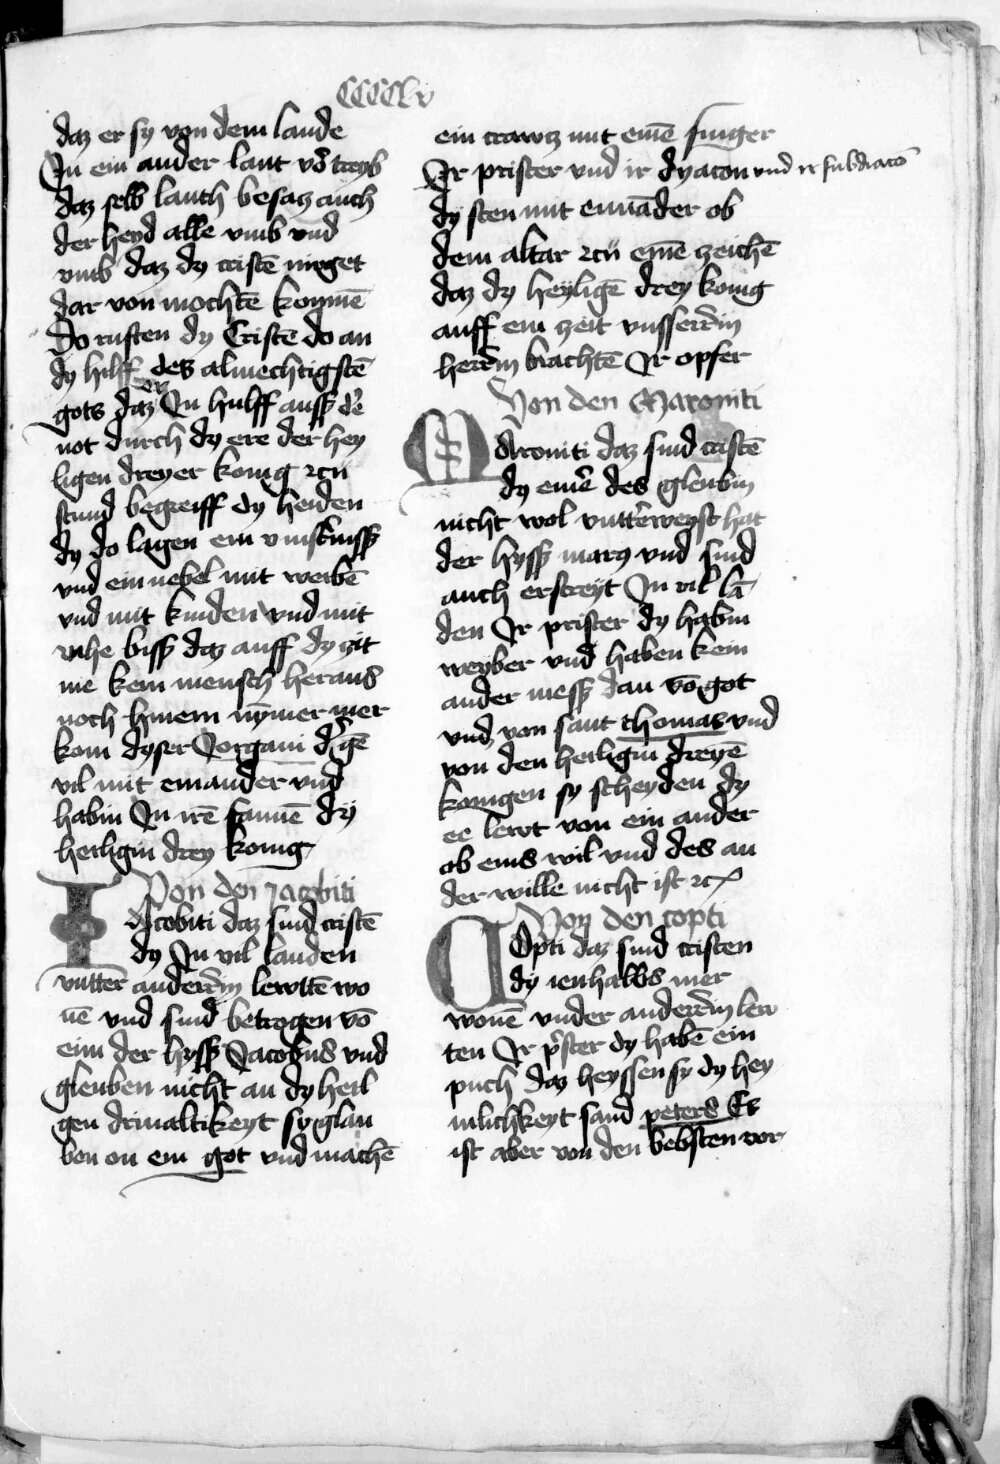 CCCClv
daz er sy von dem lande
Jn ein ander lant v̄o treyb
daz selb lanth besatz auch
der heyd alle vmb vnd
vmb daz dy cristē nyrget
dar von mochtē kommē
Do ruften dy Cristē do an
dy hilff des almechtigstē
gots daz er Jn hulff auss d'e
not durch dy ere der hey
ligen dreyer konig zcu
stund begreiff dy heiden
dy do lagen ein vinst'nuss
vnd ein nebel mit weibē
vnd mit kinden vnd mit
vihe biss daz auff dy zit
nie kein mensch heraus
noch hinein nȳmer mer
kom dyser Jorgani d'gē
vil mit einander vnd
habin Jn irē fannē dy
heiligin drey konig
Von den Jacobiti
Jacobiti daz sind cristē
dy Jn vil landen
vntter anderdin lewttē wo
nē vnd sind betrogen vō
eim der hyss Jacobus vnd
gleuben nicht an dy heil
gen driualtikeyt sy glau
ben on ein got vnd machē
ein crawcz mit einē finger
Jr prister vnd ir dyacon vnd ir subdiacō
dy sten mit einnāder ob
dem altar zcu einē zeichē
daz dy heyligē drey konig
auff ein zeit vnsserdin
herdin brachtē Jr opfer
Von den Maroniti
Maroniti daz sind cristē
dy einē des gleubin
nicht wol vntt'weyst hat
der hyss maro vnd sind
auch erstreyt Jn vil lā
den Jr prister dy habin
weyber vnd haben kein
ander mess dan vō got
vnd von sant thomas vnd
von den heiligin dreyē
konigen sy scheyden dy
ee lewt von ein ander
ob eins wil vnd des an
der wille nicht ist zc
Von den copti
Copti daz sind cristen
dy ienhalbs mer
wonē vnder anderdin lew
ten Jr p'ster dy habē ein
puch daz heyssen sy dy hey
mlichkeyt sand peters Es
ist aber von den bebsten vor